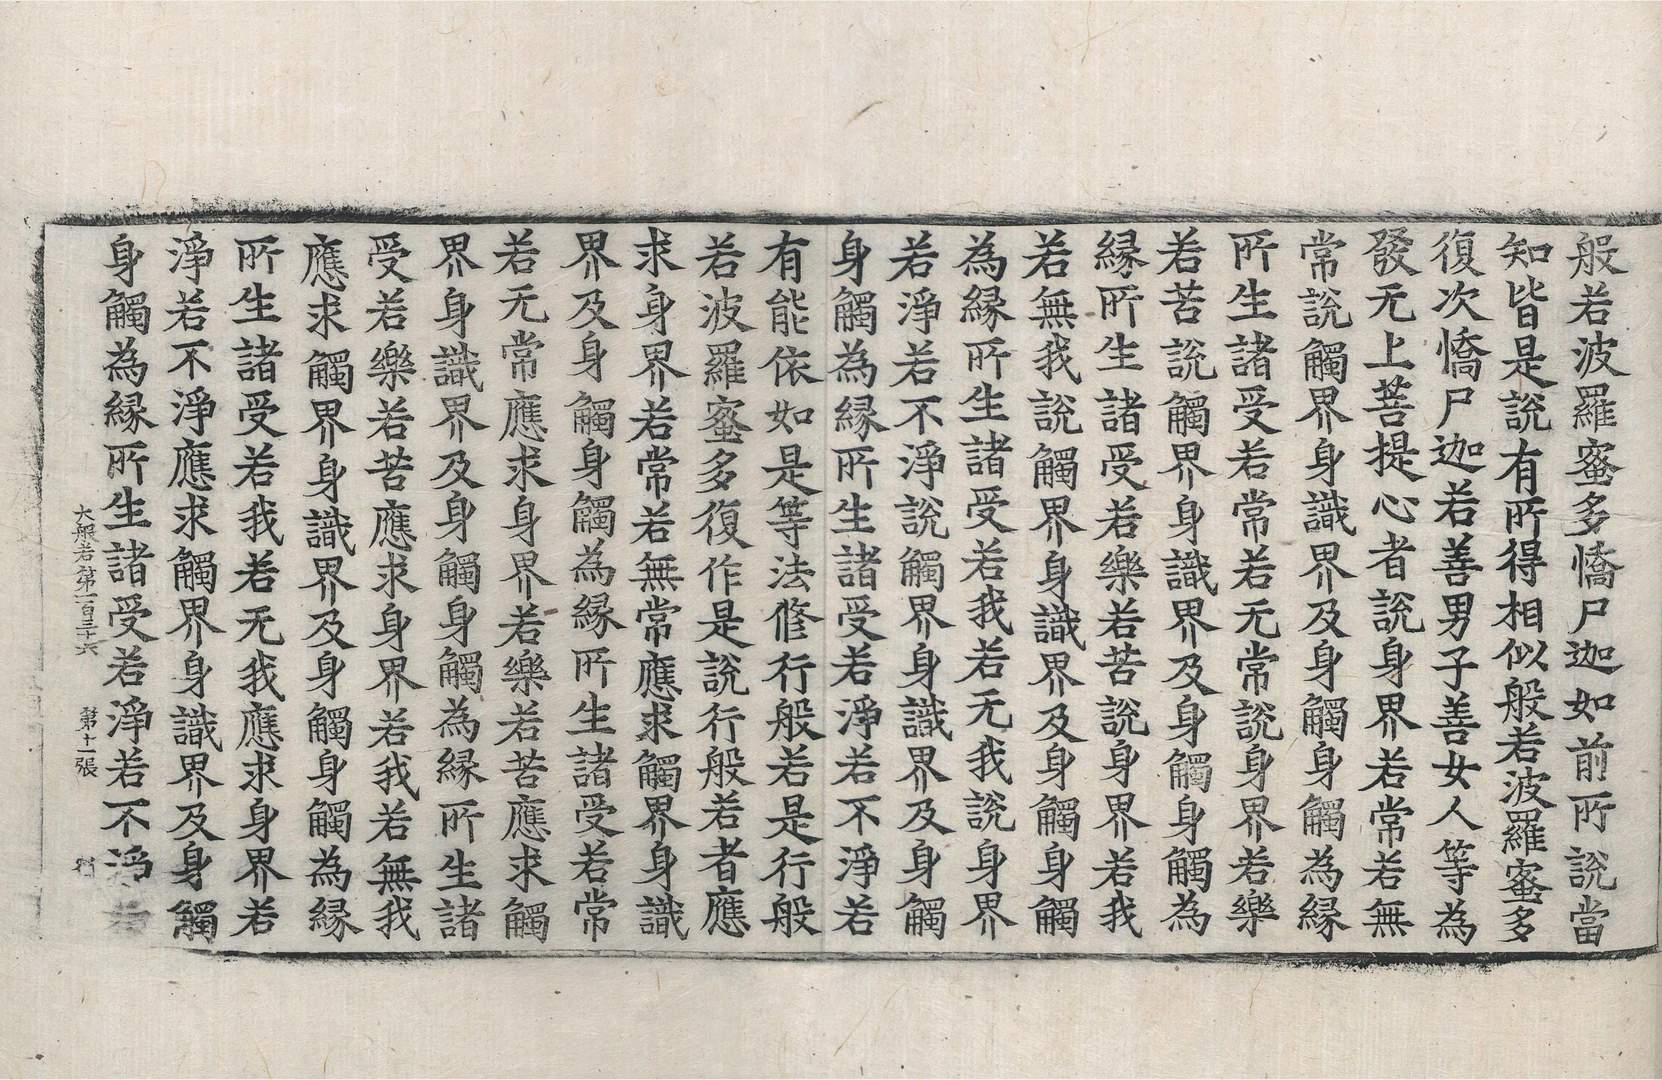 般若波羅蜜多憍尸迦如前所說當
知皆是說有所得相似般若波羅蜜多
復次憍尸迦若善男子善女人等為
發无上菩提心者說身界若常若無
常說觸界身識界及身觸身觸為緣
所生諸受若常若无常說身界若樂
若苦說觸界身識界及身觸身觸為
緣所生諸受若樂若苦說身界若我
若無我說觸界身識界及身觸身觸
為緣所生諸受若我若无我說身界
若淨若不淨說觸界身識界及身觸
身觸為緣所生諸受若淨若不淨若
有能依如是等法修行般若是行般
若波羅蜜多復作是說行般若者應
求身界若常若無常應求觸界身識
界及身觸身觸為緣所生諸受若常
若无常應求身界若樂若苦應求觸
界身識界及身觸身觸為緣所生諸
受若樂若苦應求身界若我若無我
應求觸界身識界及身觸身觸為緣
所生諸受若我若无我應求身界若
淨若不淨應求觸界身識界及身觸
身觸為緣所生諸受若淨若不淨若
大般若第一百三十六 第十一張